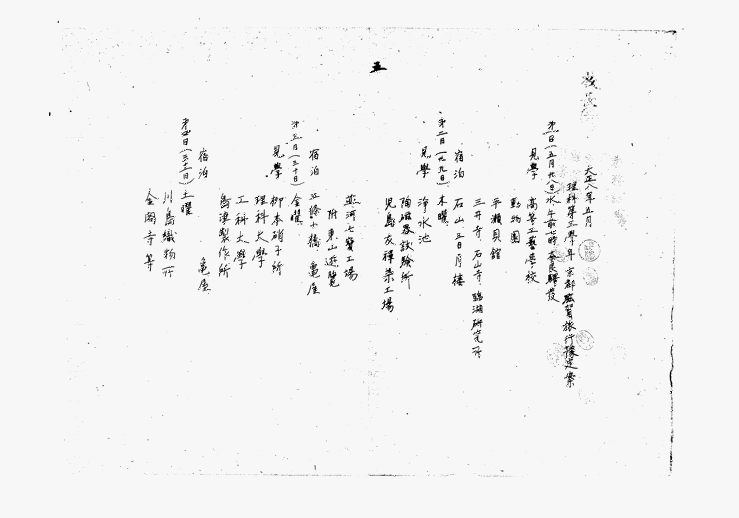 五
大正八年五月
理科第三學年京都職業旅行豫定案
第一日(五月廿八日)水 午前 時 奈良驛發
見學 高等工藝學校
動物園
平瀬貝館
三井寺 石山寺 臨湖研究所
宿泊 石山三日月樓
第二日(廿九日)木曜
見學 淨水池
陶磁器試驗所
児島友禅染工場
並河七寶工場
附 東山遊覽
宿泊 五條小橋 亀屋
第三日(三十日)金曜
見學 柳本硝子所
理科大學
工科大學
島津製作所
宿泊 亀屋
第四日(三十一日)土曜
川島織物所
金閣寺等